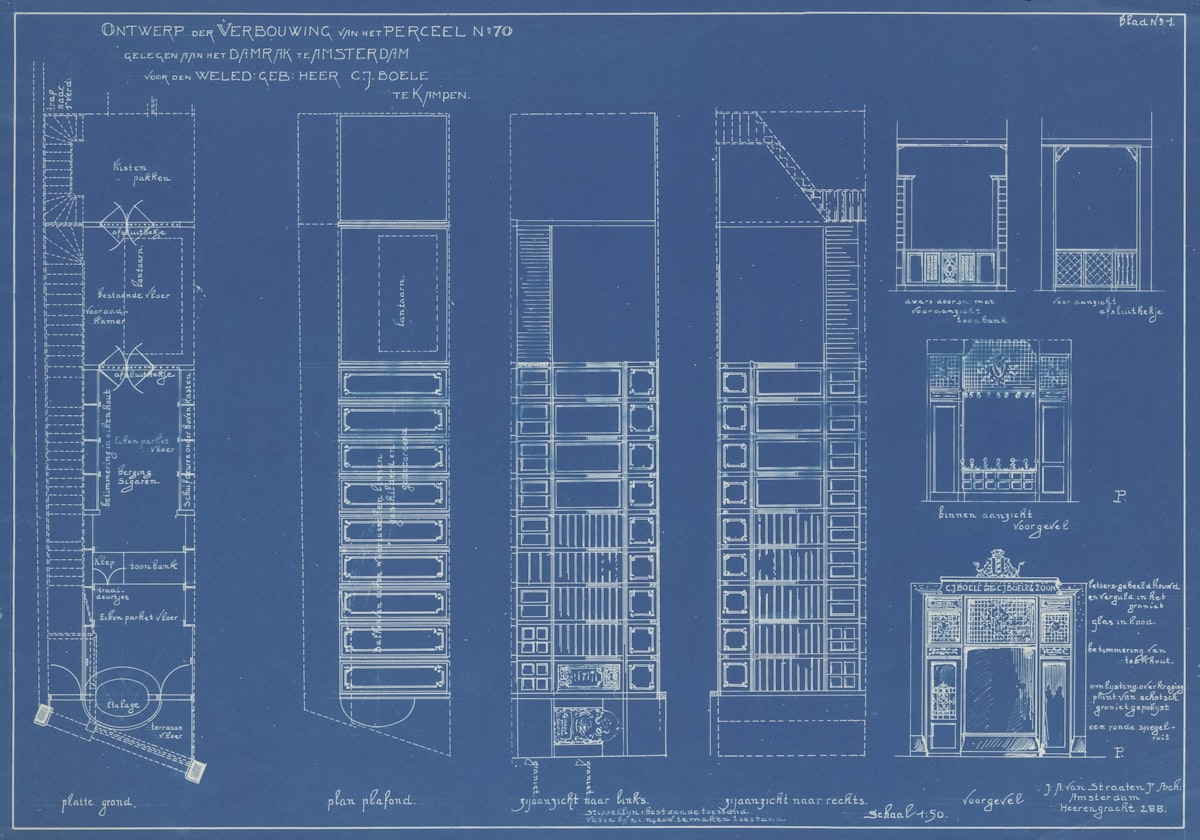 Blad No-1.
ONTWERP DER VERBOUWING VAN HET PERCEEL No 70
GELEGEN AAN HET DAMRAK TE AMSTERDAM
VOOR DEN WELED: GEB: HEER C.J. BOELE
TE KAMPEN.
trap
naar
1e Verd:
Kisten
pakken
afsluithekje
lantaarn.
Bestaande vloer
Vooraad
Kamer
afsluithekje
betimmering in eikenhout
Eiken parket
vloer
berging
Sigaren.
Schuifdeuren onder boven Kasten
Klep
toonbank
draai
deurtjes
Eiken parket vloer
Etalage
terrazzo
vloer
platte grond.
lantaarn.
plan plafond.
zijaanzicht naar links.
Stippellijn: bestaande toestand
Vaste lijn: nieuw te maken toestand
zijaanzicht naar rechts.
Schaal 1:50.
dwars doorsn: met
vooraanzicht
toonbank.
voor aanzicht
afsluithekje
binnen aanzicht
voorgevel
P.
C.J BOELE C.J BOELE & ZOON
letters gebeeldhouwd
en verguld in het
graniet
glas in lood.
betimmering van
teakhout.
omlijsting, overkraging
plint van schotsch
graniet gepolijst
een ronde spiegel-
ruit
P.
voorgevel
J. A. van Straaten Jr Arch:
Amsterdam
Heerengracht 288.